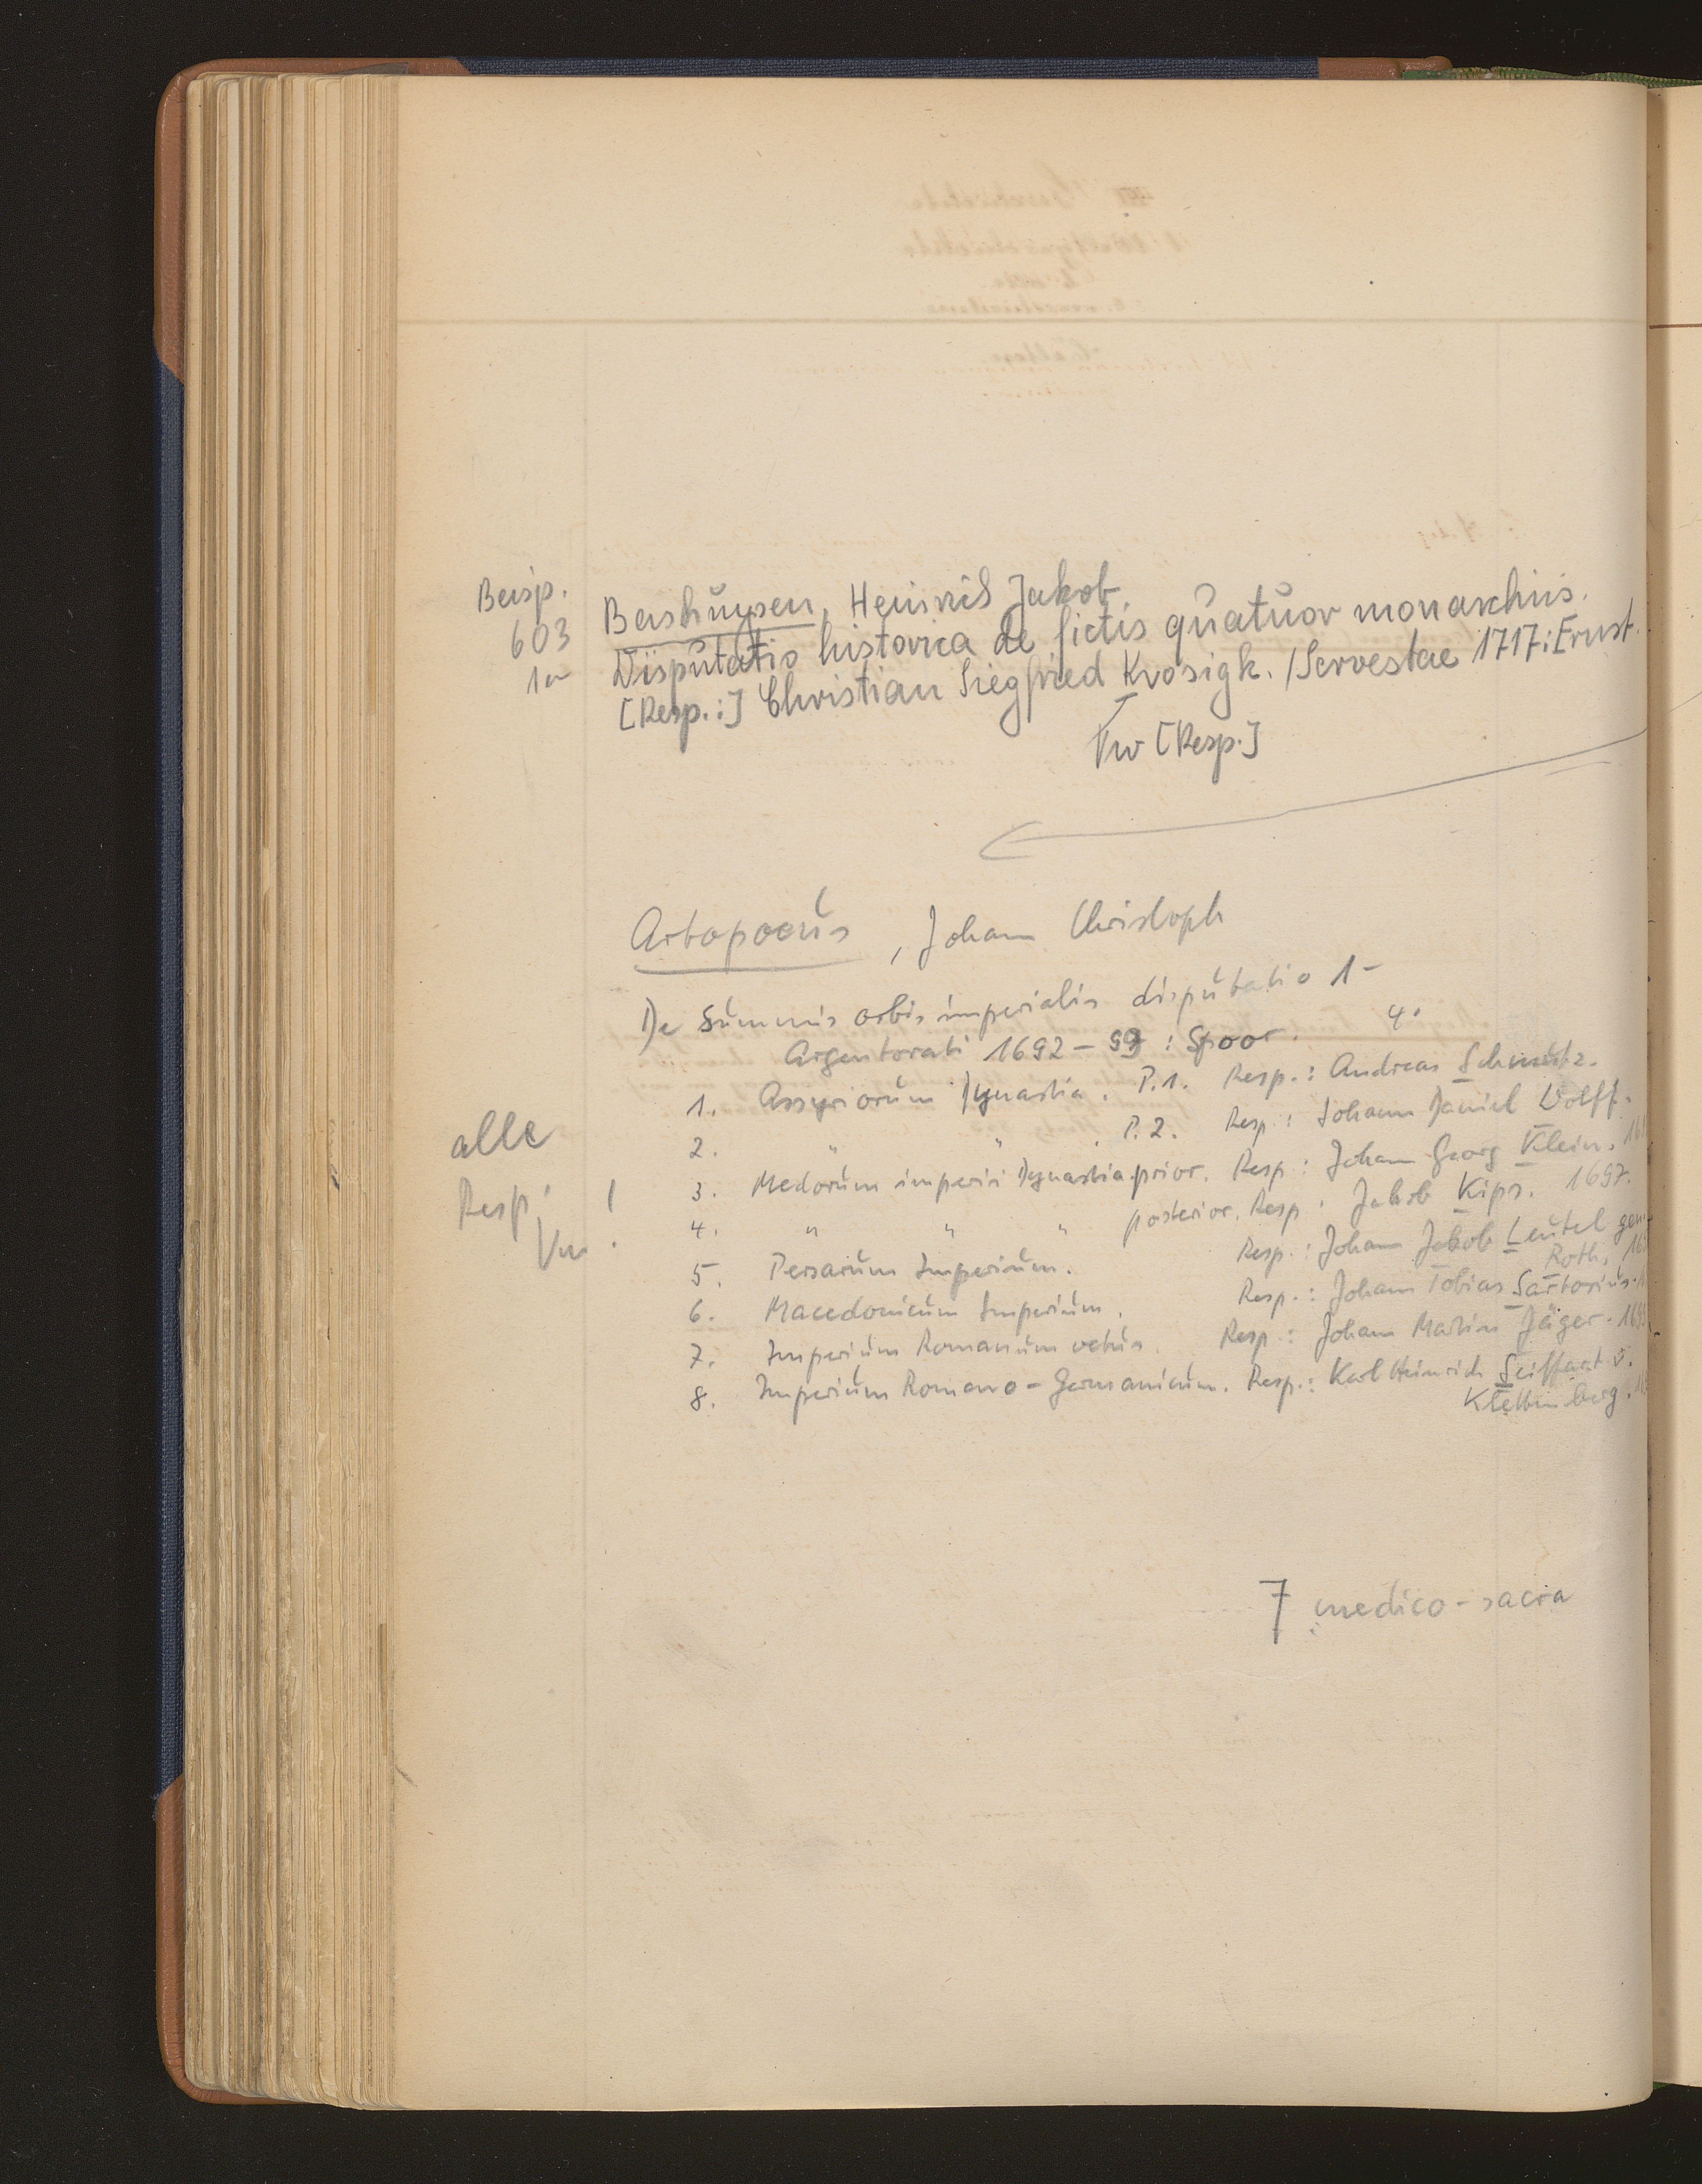 Beisp.
603
1a
Bashuysen, Heinrich Jakob.
Disputatio historica de fictis quatuor monarchiis.
[Resp.:] Christian Siegfried Krosigk. / Servestae 1717: Ernst.
Vw [Resp.]
Artopoeus, Johann Christoph
De summis orbis imperialis disputatio 1-
Argentorati 1692-99: Spoor. 4.
alle
Resp.
Vw. !
1. Assyriorum Dynastia. P.1. Resp.: Andreas Schmutz.
2. " " . P.2. Resp.: Johann Daniel Wolff.
3. Medorum imperii Dynastia prior. Resp.: Johann Georg Klein.
4. " " " posterior. Resp.: Jakob Kips. 1697.
5. Persarum Imperium. Resp.: Johann Jakob Leutel gen.
Roth.
6. Macedonicum Imperium. Resp.: Johann Tobias Sartorius.
7. Imperium Romanum vetus. Resp.: Johann Martin Jäger.
8. Imperium Romano-Germanicum. Resp.: Karl Heinrich Seiffart v.
7 medico-sacra